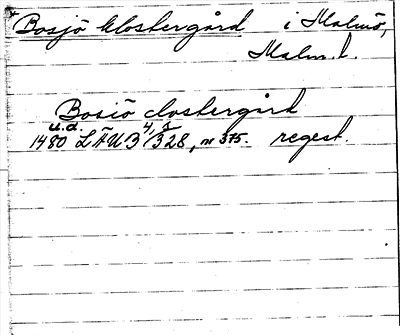 Bosjö klostergård i Malmö,
Malm. l.
Bosiö clostergård
u.d.
1480 LÄUB 4,2/328, nr 375. regest.